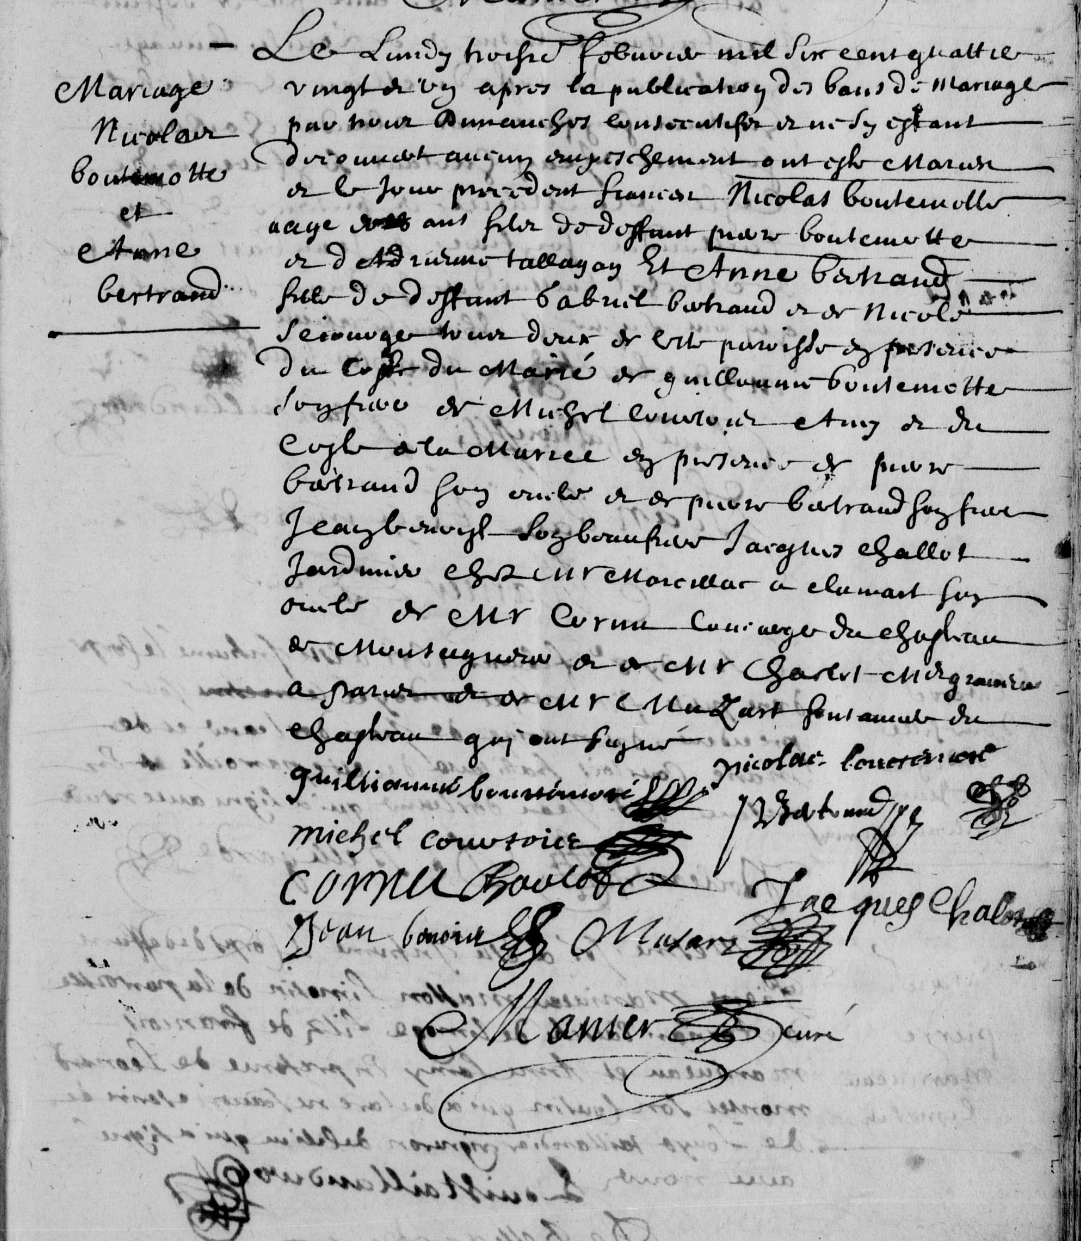 Mariage
Nicolas
boutemotte
et
Anne
bertrand
Le Lundy troisie febvrier mil six cent quattre
vingt et un apres la publication des bans de Mariage
par trois dimanches consecutifs et ne sy estant
decouvert aucun empeschement ont este Mariez
et le jour precedent fiancez Nicolas boutemotte
aage de ans filz de deffunt pierre boutemotte
et dAdrienne tallagon Et Anne bertrand
fille de deffunt Gabriel bertrand et de Nicole
tous deux de cette paroisse en presence
du costé du Marié de guillaume boutemotte
son frere de Michel Courtois Amy et du
costé de la Mariee en presence de pierre
bertrand son oncle et de pierre bertrand son frere
Jean benoist son beaufrere Jacques Challot
Jardinier chez Mr Marcillac a clamart son
oncle de Mr Cornu Concierge du chasteau
de et de Mr Charlot
a Paris et de Mr Muzart fontainier du
chasteau qui ont signé
guilliaume boutemote Nicolas boutemotte
PBertrand
michel courtois
cornu
Jacques Chalot
Jean benoist Musart
Manier curé